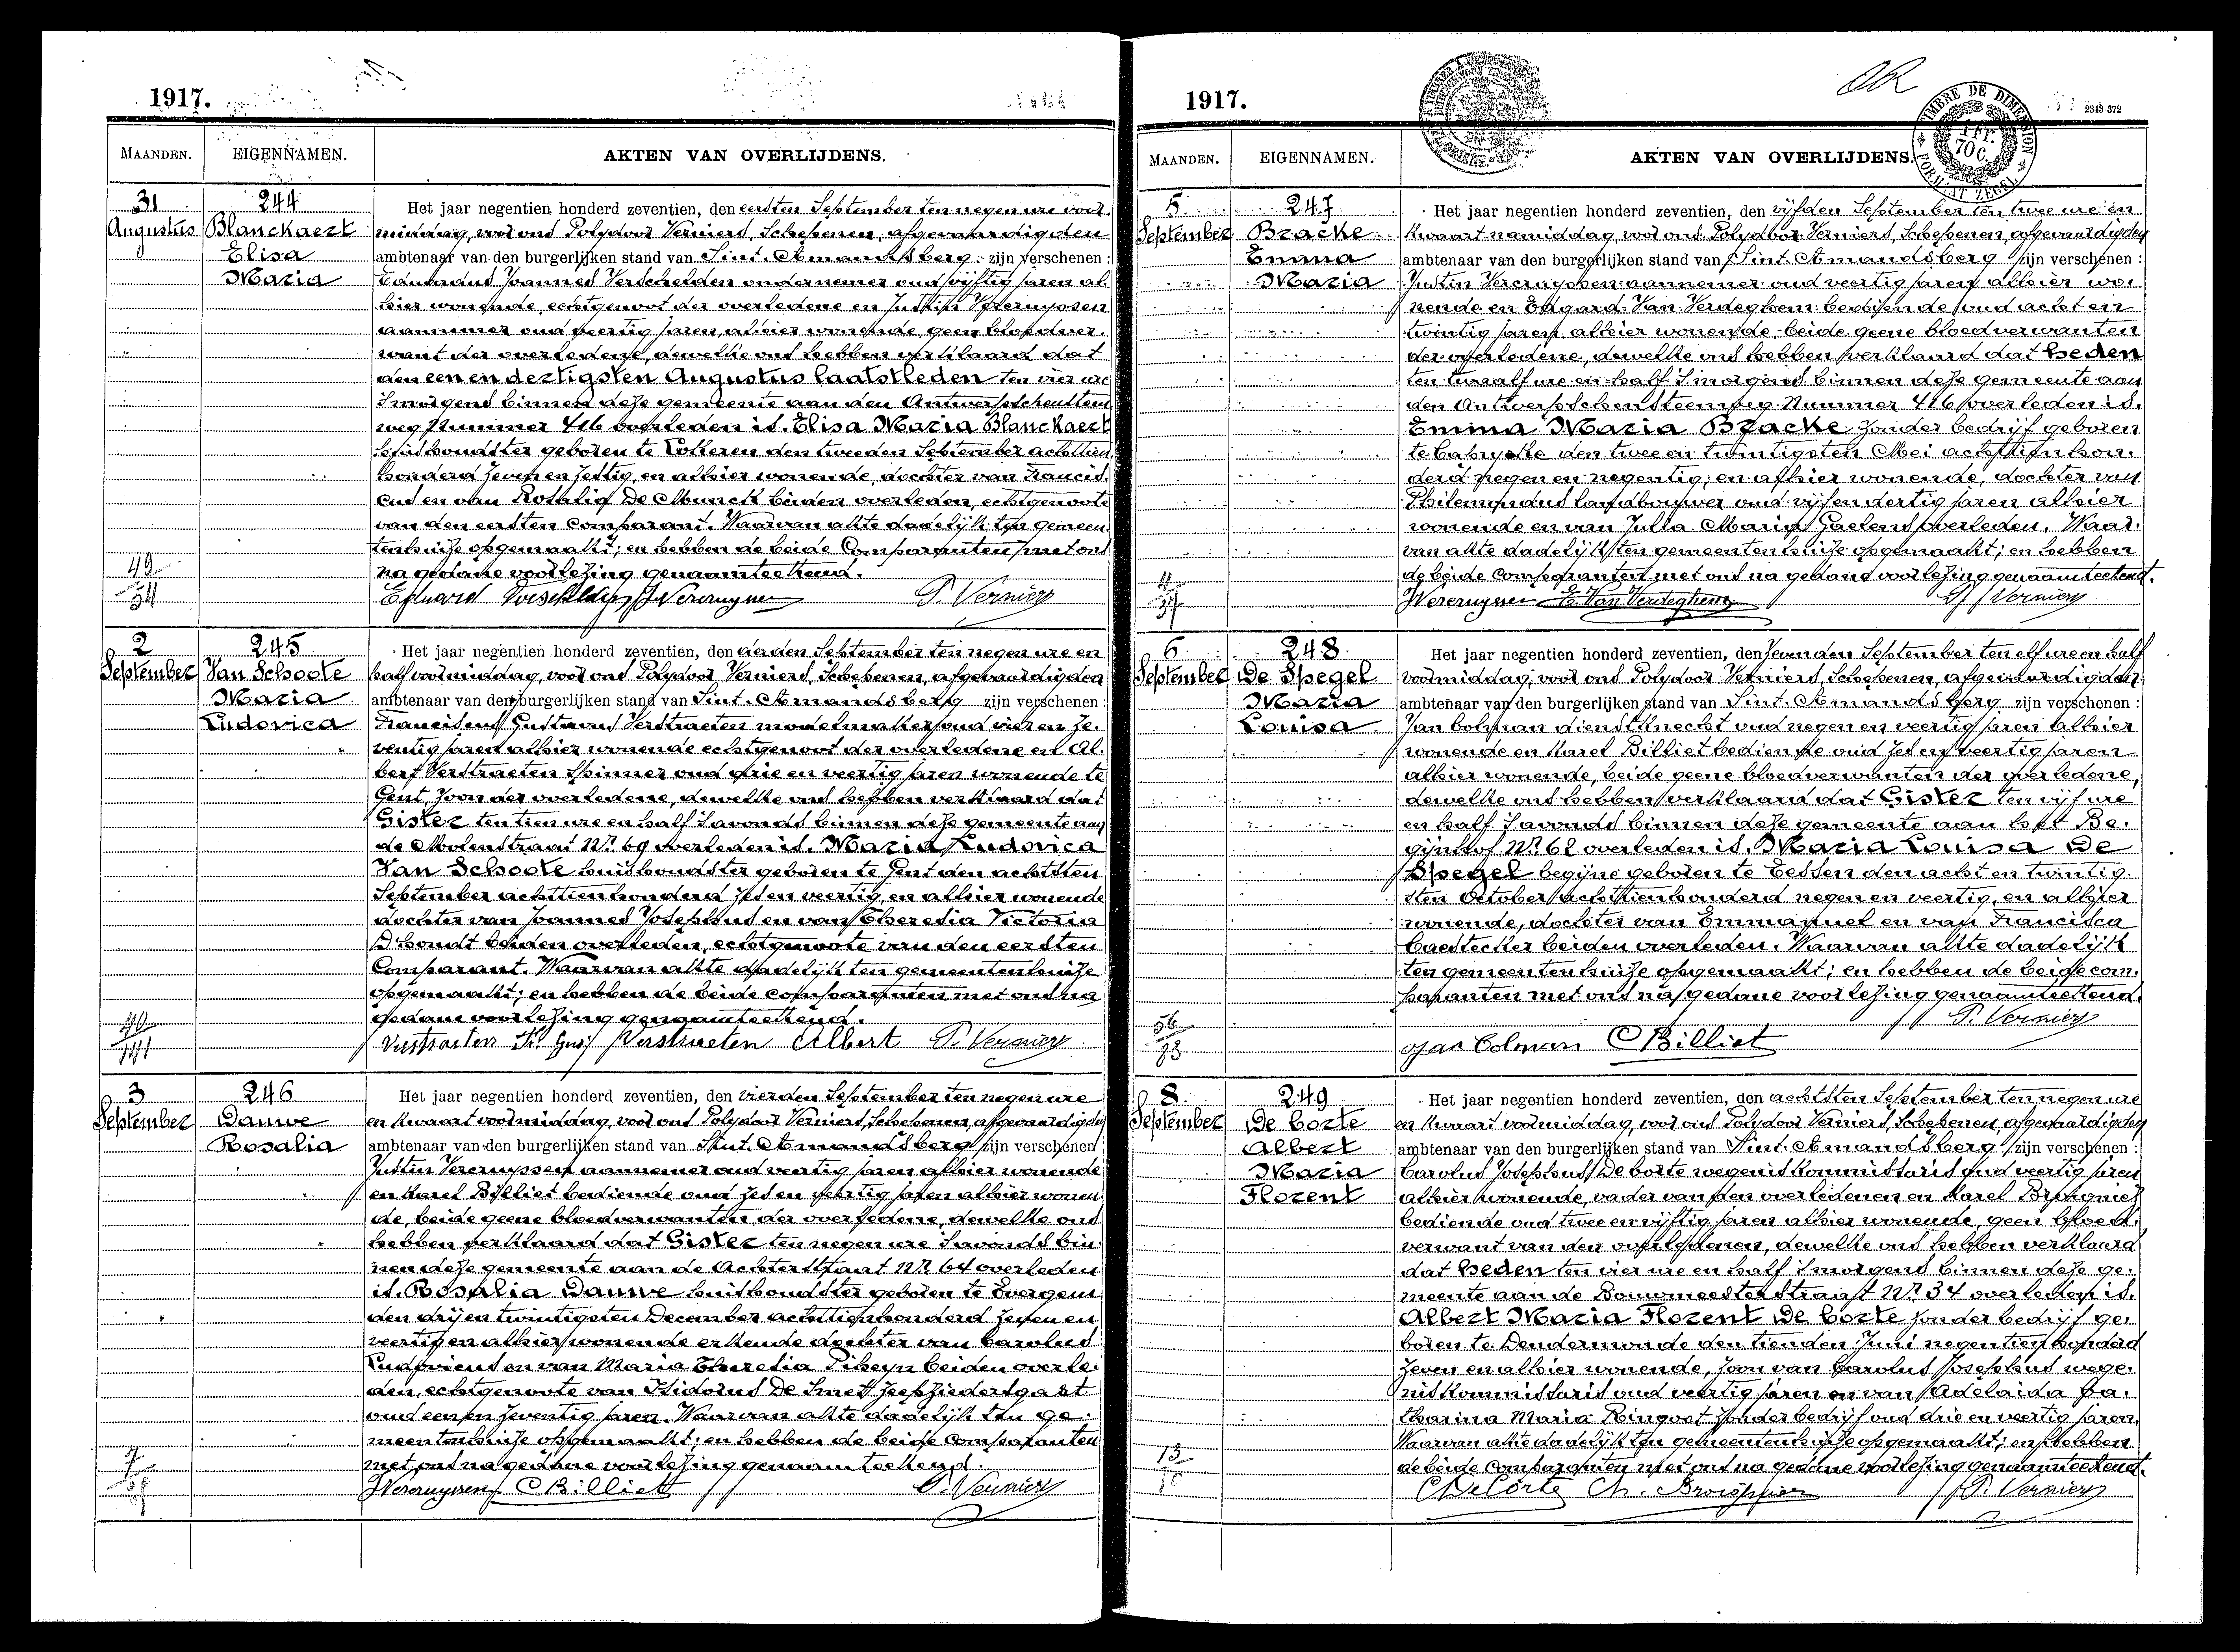 1917.
MAANDEN. EIGENNAMEN. AKTEN VAN OVERLIJDENS.
31 Augustus
244
Blanckaert
Elisa
Maria
Het jaar negentien honderd zeventien, den eersten September ten negen ure voor-
middag, voor ons Polydoor Verniers, Schepenen, afgevaardigden
ambtenaar van den burgerlijken stand van Sint-Amandsberg zijn verschenen :
Eduardus Joannes Verschelden ondernemer oud vijftig jaren al-
hier wonende, echtgenoot der overledene en Justin Vercruyssen
aannemer oud veertig jaren alhier wonende, geen bloedver-
want der overledene, dewelke ons hebben verklaard dat
den een en dertigsten Augustus laatstleden ten vier ure
's morgens binnen deze gemeente aan den Antwerpschensteen-
weg Nummer 416 overleden is Elisa Maria Blanckaert
huishoudster geboren te Lokeren den tweeden September achttien
honderd zeven en zestig, en alhier wonende, dochter van Francis-
cus en van Rosalia De Munck beiden overleden, echtgenoote
van den eersten Comparant. Waarvan akte dadelijk ten gemeen-
tenhuize opgemaakt; en hebben de beide Comparanten met ons
na gedane voorlezing genaamteekend.
49
Eduard Verschelden JVercruyssen P. Verniers
2 September
245
Van Schoote
Maria
Ludovica
Het jaar negentien honderd zeventien, den derden September ten negen ure en
half voormiddag, voor ons Polydoor Verniers, Schepenen, afgevaardigden
ambtenaar van den burgerlijken stand van Sint-Amandsberg zijn verschenen :
Franciscus Gustavus Verstraeten modelmaker oud vier en ze-
ventig jaren alhier wonende echtgenoot der overledene en Al-
bert Verstraeten spinner oud drie en veertig jaren wonende te
Gent, zoon der overledene, dewelke ons hebben verklaard dat
Gister ten tien ure en half 's avonds binnen deze gemeente aan
de Molenstraat Nr 69 overleden is Maria Ludovica
Van Schoote huishoudster geboren te Gent den achtsten
September achttienhonderd zes en veertig, en alhier wonende
dochter van Joannes Josephus en van Theresia Victoria
D'hondt beiden overleden, echtgenoote van den eersten
Comparant. Waarvan akte dadelijk ten gemeentenhuize
opgemaakt; en hebben de beide comparanten met ons na
gedane voorlezing genaamteekend.
Verstraeten Fr. Gus. Verstraeten Albert P. Verniers
3 September
246
Dauwe
Rosalia
Het jaar negentien honderd zeventien, den vierden September ten negen ure
en kwaart voormiddag, voor ons Polydoor Verniers, Schepenen, afgevaardigden
ambtenaar van den burgerlijken stand van Sint-Amandsberg zijn verschenen
Justin Vercruyssen aannemer oud veertig jaren alhier wonende
en Karel Billiet bediende oud zes en veertig jaren alhier wonen-
de, beide geene bloedverwanten der overledene, dewelke ons
hebben verklaard dat Gister ten negen ure 's avonds bin-
nen deze gemeente aan de Achterstraat Nr 64 overleden
is Rosalia Dauwe huishoudster geboren te Evergem
den drij en twintigsten December achttienhonderd zeven en
veertig en alhier wonende erkende dochter van Carolus
Ludovicus en van Maria Theresia Piheyn beiden overle-
den, echtgenoote van Isidorus De Smet zeepziedersgast
oud een en zeventig jaren. Waarvan akte dadelijk ten ge-
meentenhuize opgemaakt; en hebben de beide Comparanten
met ons na gedane voorlezing genaamteekend.
JVercruyssen CBilliet P. Verniers
1917.
2343-372
MAANDEN. EIGENNAMEN. AKTEN VAN OVERLIJDENS.
5 September
247
Bracke
Emma
Maria
Het jaar negentien honderd zeventien, den vijfden September ten twee ure en
kwaart namiddag, voor ons Polydoor Verniers, Schepenen, afgevaardigden
ambtenaar van den burgerlijken stand van Sint-Amandsberg zijn verschenen :
Justin Vercruyssen aannemer oud veertig jaren alhier wo-
nende en Edgard Van Verdeghem bediende oud acht en
twintig jaren alhier wonende beide geene bloedverwanten
der overledene, dewelke ons hebben verklaard dat heden
ten twaalf ure en half 's morgens binnen deze gemeente aan
den Antwerpschensteenweg Nummer 416 overleden is
Emma Maria Bracke zonder bedrijf geboren
te Caprycke den twee en twintigsten Mei achttien hon-
derd negen en negentig, en alhier wonende, dochter van
Philemondus landbouwer oud vijf en dertig jaren alhier
wonende en van Julia Maria Gaelens overleden. Waar-
van akte dadelijk ten gemeentenhuize opgemaakt; en hebben
de beide Comparanten met ons na gedane voorlezing genaamteekend.
JVercruyssen E. Van Verdeghem P. Verniers
6 September
248
De Spegel
Maria
Louisa
Het jaar negentien honderd zeventien, den zevenden September ten elf ure en half
voormiddag, voor ons Polydoor Verniers, Schepenen, afgevaardigden
ambtenaar van den burgerlijken stand van Sint-Amandsberg zijn verschenen :
Jan Colman dienstknecht oud negen en veertig jaren alhier
wonende en Karel Billiet bediende oud zes en veertig jaren
alhier wonende, beide geene bloedverwanten der overledene,
dewelke ons hebben verklaard dat Gister ten vijf ure
en half 's avonds binnen deze gemeente aan het Be-
gijnhof Nr 62 overleden is Maria Louisa De
Spegel begijne geboren te Eessen den acht en twintig-
sten October achttienhonderd negen en veertig, en alhier
wonende, dochter van Emmanuel en van Francisca
Caestecker beiden overleden. Waarvan akte dadelijk
ten gemeentenhuize opgemaakt; en hebben de beide com-
paranten met ons na gedane voorlezing genaamteekend.
P. Verniers
Jan Colman CBilliet
8 September
249
De Corte
Albert
Maria
Florent
Het jaar negentien honderd zeventien, den achtsten September ten negen ure
en kwaart voormiddag, voor ons Polydoor Verniers, Schepenen, afgevaardigden
ambtenaar van den burgerlijken stand van Sint-Amandsberg zijn verschenen :
Carolus Josephus De Corte wegeniskommissaris oud veertig jaren
alhier wonende, vader van den overledenen en Karel
bediende oud twee en vijftig jaren alhier wonende, geen bloed-
verwant van den overledenen, dewelke ons hebben verklaard
dat heden ten vier ure en half 's morgens binnen deze ge-
meente aan de Bouwmeesterstraat Nr 34 overleden is
Albert Maria Florent De Corte zonder bedrijf ge-
boren te Dendermonde den tienden Juni negentien honderd
zeven en alhier wonende, zoon van Carolus Josephus wege-
niskommissaris oud veertig jaren en van Adelaida Ca-
tharina Maria Ringoot zonder bedrijf oud drie en veertig jaren.
Waarvan akte dadelijk ten gemeentenhuize opgemaakt; en hebben
de beide Comparanten met ons na gedane voorlezing genaamteekend.
13
CDeCorte P. Verniers